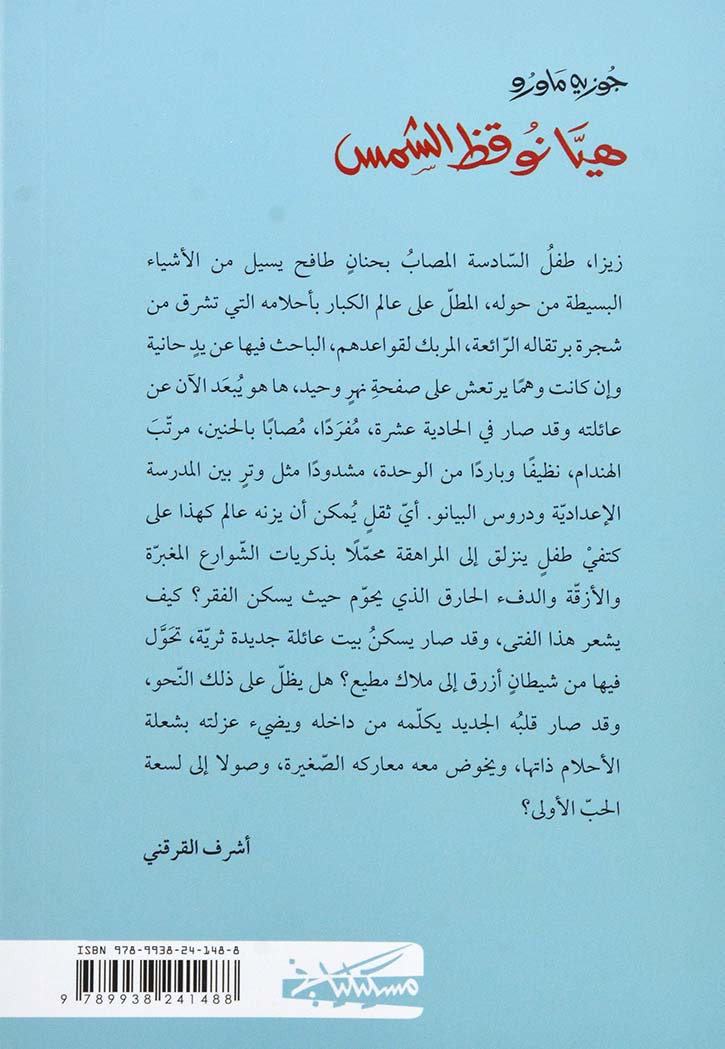 جُوزيه مَاورو
هيَّا نُوقظ الشّمس
زيزا، طفلُ السّادسة المصابُ بحنانٍ طافح يسيل من الأشياء
البسيطة من حوله، المطلّ على عالم الكبار بأحلامه التي تشرق من
شجرة برتقاله الرّائعة، المربك لقواعدهم، الباحث فيها عن يدٍ حانية
وإن كانت وهمًا يرتعش على صفحةِ نهرٍ وحيد، ها هو يُبعَد الآن عن
عائلته وقد صار في الحادية عشرة، مُفرَدًا، مُصابًا بالحنين، مرتّبَ
الهندام، نظيفًا وباردًا من الوحدة، مشدودًا مثل وترٍ بين المدرسة
الإعداديّة ودروس البيانو. أيّ ثقلٍ يُمكن أن يزنه عالم كهذا على
كتفيْ طفلٍ ينزلق إلى المراهقة محمّلًا بذكريات الشّوارع المغبرّة
والأزقّة والدفء الحارق الذي يحوّم حيث يسكن الفقر؟ كيف
يشعر هذا الفتى، وقد صار يسكنُ بيت عائلة جديدة ثريّة، تحَوَّل
فيها من شيطانٍ أزرق إلى ملاك مطيع؟ هل يظلّ على ذلك النّحو،
وقد صار قلبُه الجديد يكلّمه من داخله ويضيء عزلته بشعلة
الأحلام ذاتها، ويخوض معه معاركه الصّغيرة، وصولا إلى لسعة
الحبّ الأولى؟
أشرف القرقني
ISBN 978-9938-24-148-8
9 789938 241488
مسكيلياني